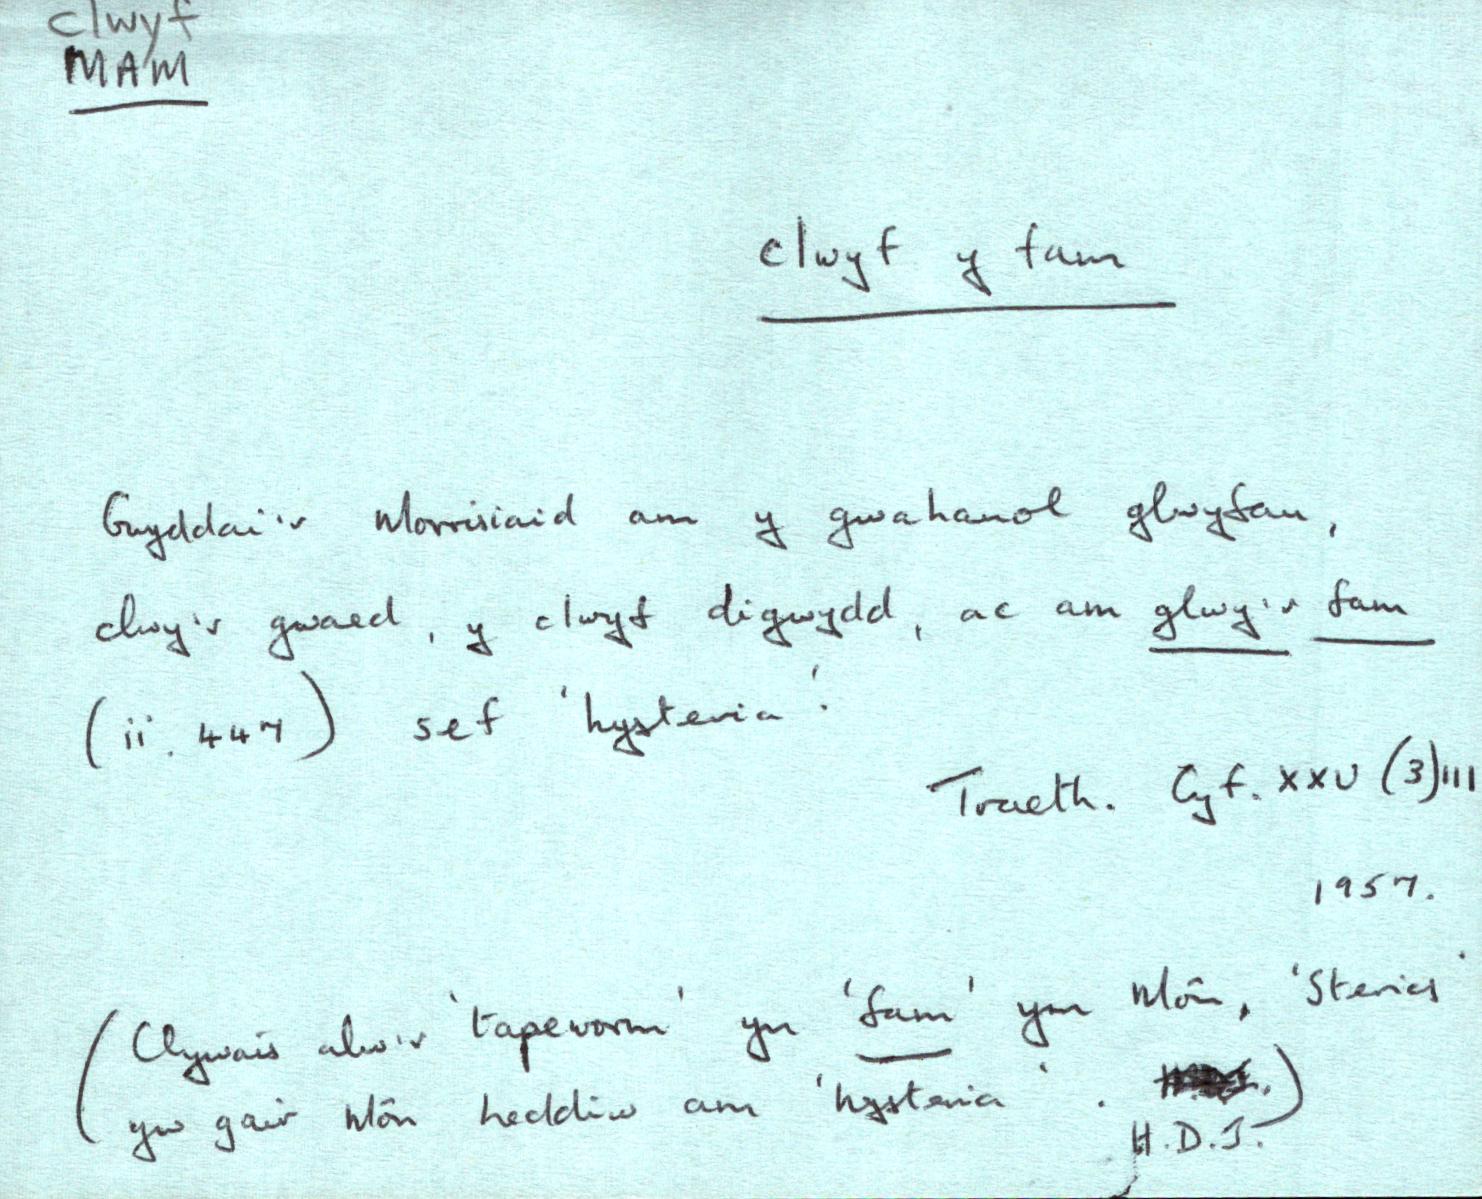 clwyf
MAM
clwyf y fam
Gwyddai'r Morrisiaid am y gwahanol glwyfau,
clwy'r gwaed, y clwyf digwydd, ac am glwy'r fam
(ii. 447) sef 'hysteria'.
Traeth. Cyf. XXV (3) 111
1957.
(Clywais alw'r 'tapeworm' yn 'fam' ym Môn, 'Sterics'
yw gair Môn heddiw am 'hysteria'. )
H.D.J.